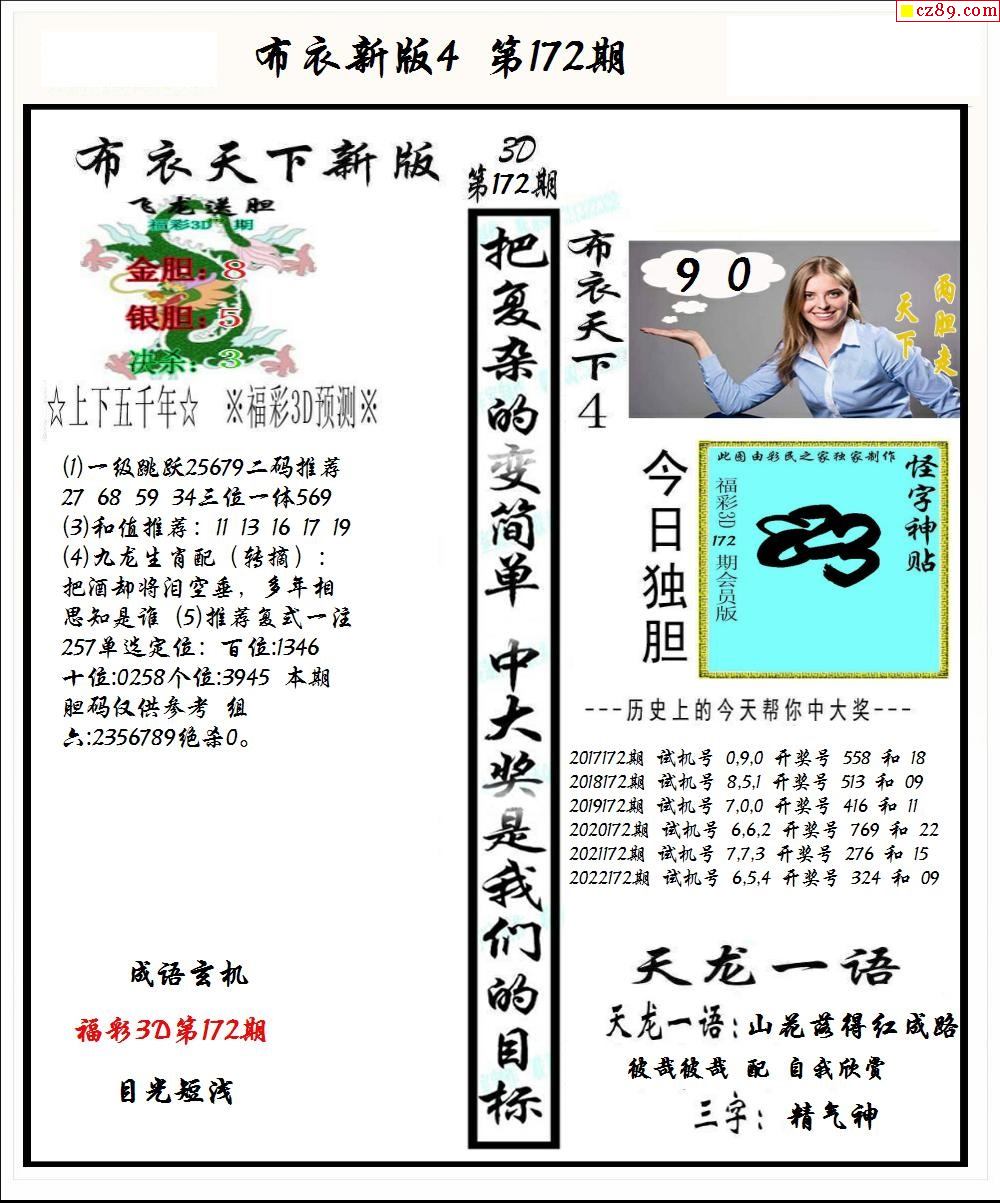 cz89.com
布衣新版4 第172期
布衣天下新版
飞龙送胆
福彩3D 期
金胆：8
银胆：5
决杀：3
☆上下五千年☆ ※福彩3D预测※
(1)一级跳跃25679二码推荐
27 68 59 34三位一体569
(3)和值推荐：11 13 16 17 19
(4)九龙生肖配（转摘）：
把酒却将泪空垂，多年相
思知是谁 (5)推荐复式一注
257单选定位：百位:1346
十位:0258个位:3945 本期
胆码仅供参考 组
六:2356789绝杀0。
成语玄机
福彩3D第172期
目光短浅
3D
第172期
把复杂的变简单 中大奖是我们的目标
布衣天下4
9 0
两胆走
天下
今日独胆
此图由彩民之家独家制作
怪字神贴
福彩3D 172 期会员版
---历史上的今天帮你中大奖---
2017172期 试机号 0,9,0 开奖号 558 和 18
2018172期 试机号 8,5,1 开奖号 513 和 09
2019172期 试机号 7,0,0 开奖号 416 和 11
2020172期 试机号 6,6,2 开奖号 769 和 22
2021172期 试机号 7,7,3 开奖号 276 和 15
2022172期 试机号 6,5,4 开奖号 324 和 09
天龙一语
天龙一语：山花落得红成路
彼哉彼哉 配 自我欣赏
三字：精气神